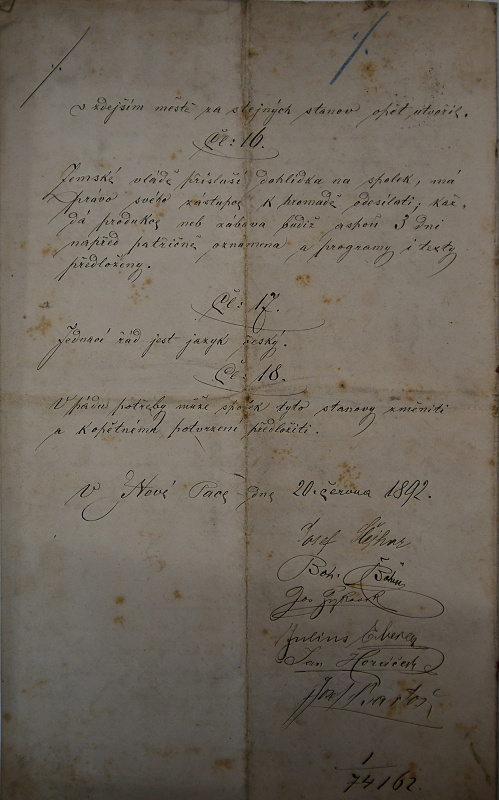 v zdejším městě za stejných stanov opět utvořil.
Čl: 16.
Zemské vládě přísluší dohlídka na spolek, má
právo svého zástupce k hromadě odesílati, kaž-
dá produkce neb zábava budiž aspoň 3 dni
napřed patřičně oznámena a programy i texty
předloženy.
Čl: 17.
Jednací řád jest jazyk český.
Čl: 18.
V pádu potřeby může spolek tyto stanovy změniti
a k opětnému potvrzení předložiti.
V Nové Pace dne 20. června 1892.
Josef
Boh. Böhm
Jos
Julius
Jan Horáček
Jos. Bartoš
1
74162.